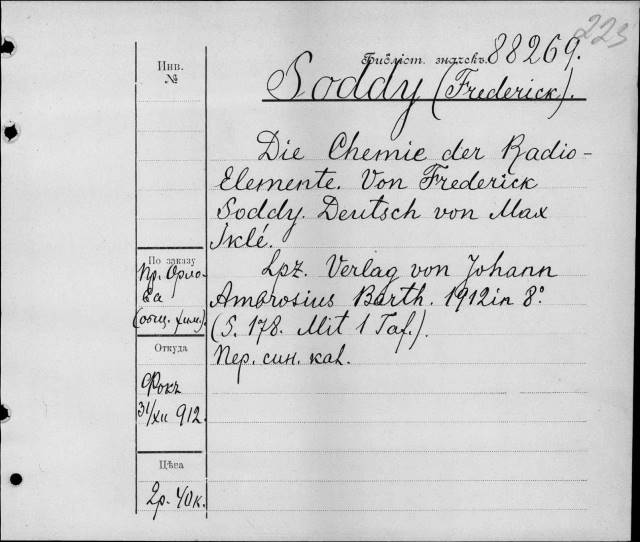 223
Библіот. значекъ 88269.
Soddy (Frederick).
Инв.
№
Die Chemie der Radio-
Elemente. Von Frederick
Soddy. Deutsch von Max
Iklé.
Lpz. Verlag von Johann
Ambrosius Barth. 1912 in 8°.
(S. 178. Mit 1 Taf.).
Пер. син. каl.
По заказу
Пр. Орло-
ва
(общ. хим.).
Откуда
Фокъ
31/XII 912.
Цѣса
2р. 40к.